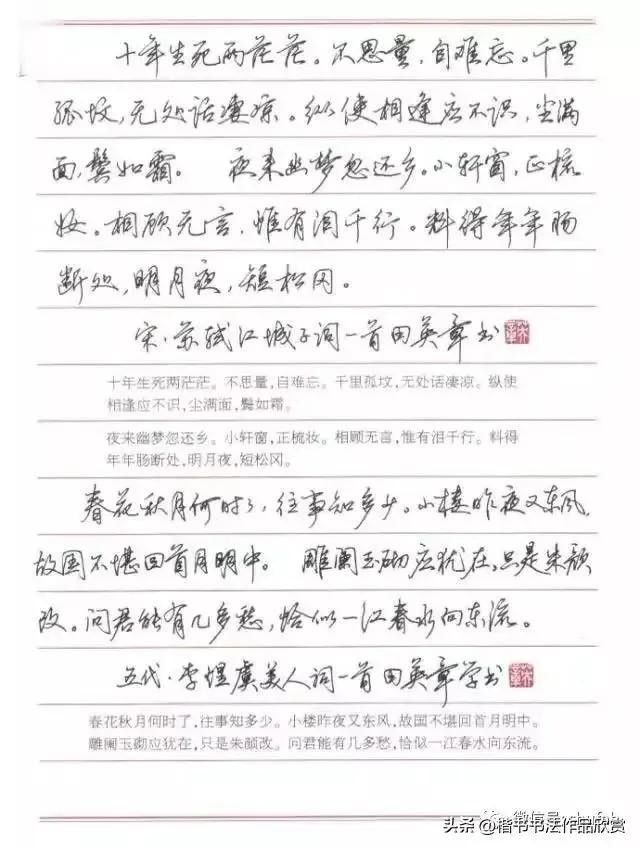 十年生死两茫茫。不思量,自难忘。千里
孤坟,无处话凄凉。纵使相逢应不识,尘满
面,鬓如霜。 夜来幽梦忽还乡。小轩窗,正梳
妆。相顾无言,惟有泪千行。料得年年肠
断处,明月夜,短松冈。
宋·苏轼江城子词一首田英章书
十年生死两茫茫。不思量,自难忘。千里孤坟,无处话凄凉。纵使
相逢应不识,尘满面,鬓如霜。
夜来幽梦忽还乡。小轩窗,正梳妆。相顾无言,惟有泪千行。料得
年年肠断处,明月夜,短松冈。
春花秋月何时了,往事知多少。小楼昨夜又东风,
故国不堪回首月明中。 雕阑玉砌应犹在,只是朱颜
改。问君能有几多愁,恰似一江春水向东流。
五代·李煜虞美人词一首田英章学书
春花秋月何时了,往事知多少。小楼昨夜又东风,故国不堪回首月明中。
雕阑玉砌应犹在,只是朱颜改。问君能有几多愁,恰似一江春水向东流。
微信号
头条@楷书书法作品欣赏